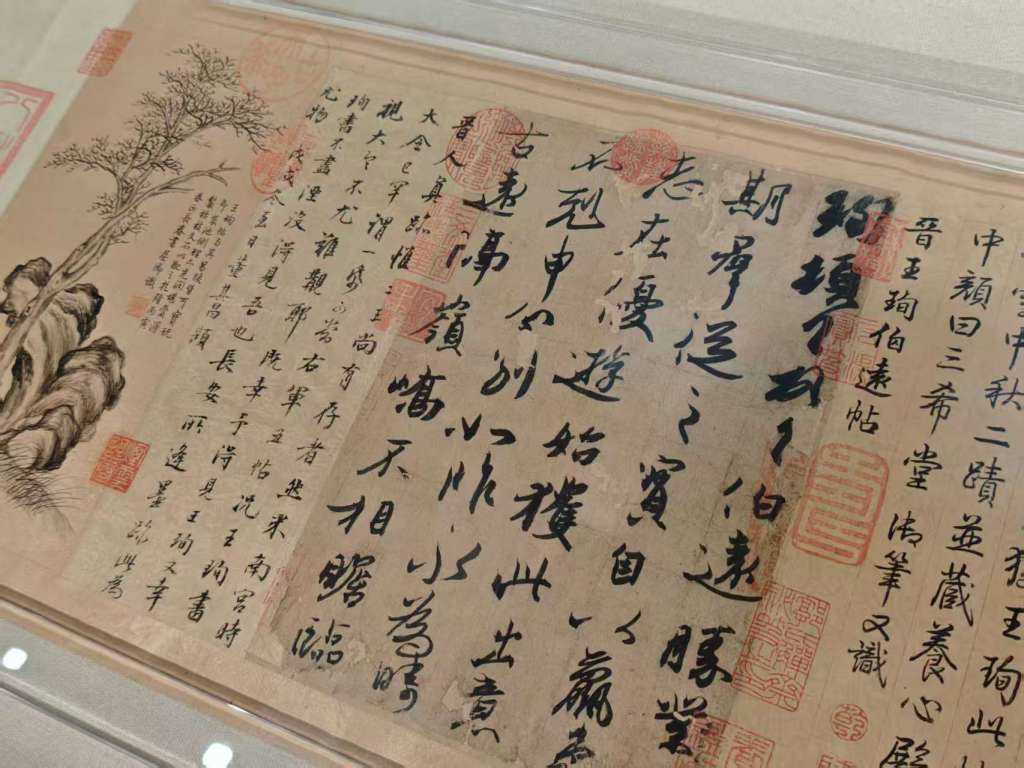 猶王珣此
雪中秋二蹟並藏養心殿
中顏曰三希堂御筆又識
晉王珣伯遠帖
珣頓首頓首伯遠勝業
期群從之寶自以羸患
志在優遊始獲此出意
不剋申分別如昨永為疇
古遠隔嶺嶠不相瞻臨
晉人真跡惟二王尚有存者然米南宮時
大令已罕謂一紙可當右軍五帖況王珣書
視大令不尤難覯耶既幸予得見王珣又幸
珣書不盡湮沒得見吾也長安所逢墨跡此為
尤物 戊戌冬至日董其昌題